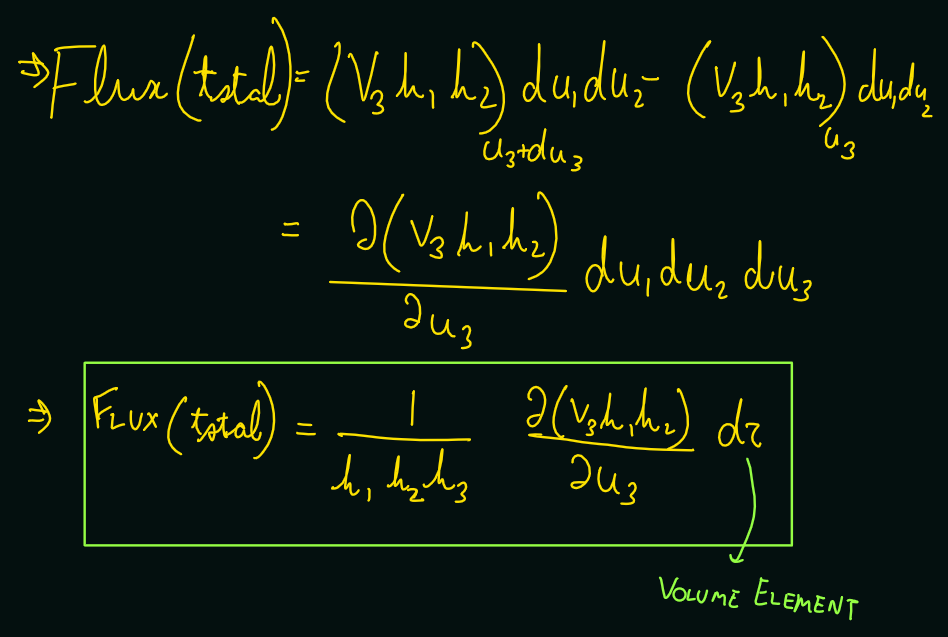 ⇒ Flux (total) = (V₃ h₁ h₂)_{u₃+du₃} du₁ du₂ − (V₃ h₁ h₂)_{u₃} du₁ du₂
= ∂(V₃ h₁ h₂)/∂u₃ du₁ du₂ du₃
⇒ FLUX (total) = 1/(h₁ h₂ h₃) ∂(V₃ h₁ h₂)/∂u₃ dτ
VOLUME ELEMENT